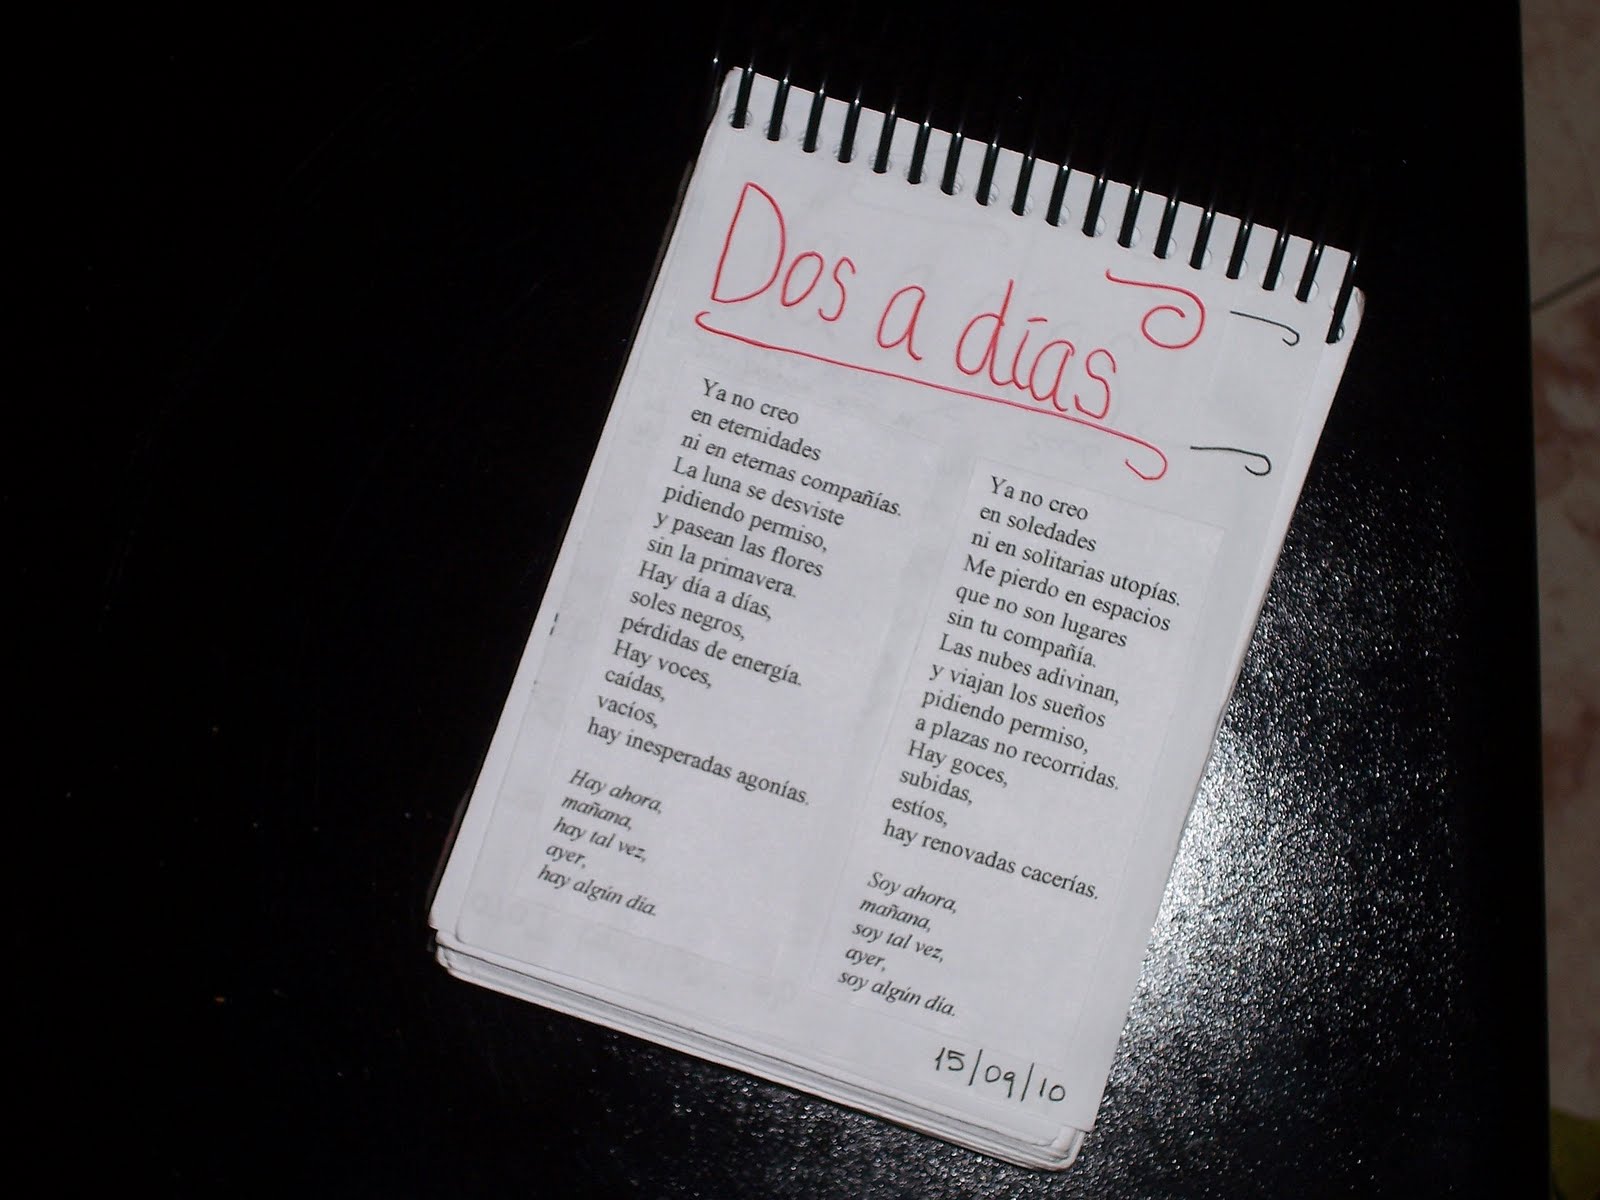 Dos a días
Ya no creo
en eternidades
ni en eternas compañías.
La luna se desviste
pidiendo permiso,
y pasean las flores
sin la primavera.
Hay día a días,
soles negros,
pérdidas de energía.
Hay voces,
caídas,
vacíos,
hay inesperadas agonías.
Hay ahora,
mañana,
hay tal vez,
ayer,
hay algún dia.
Ya no creo
en soledades
ni en solitarias utopías.
Me pierdo en espacios
que no son lugares
sin tu compañía.
Las nubes adivinan,
y viajan los sueños
pidiendo permiso,
a plazas no recorridas.
Hay goces,
subidas,
estíos,
hay renovadas cacerías.
Soy ahora,
mañana,
soy tal vez,
ayer,
soy algún día.
15/09/10